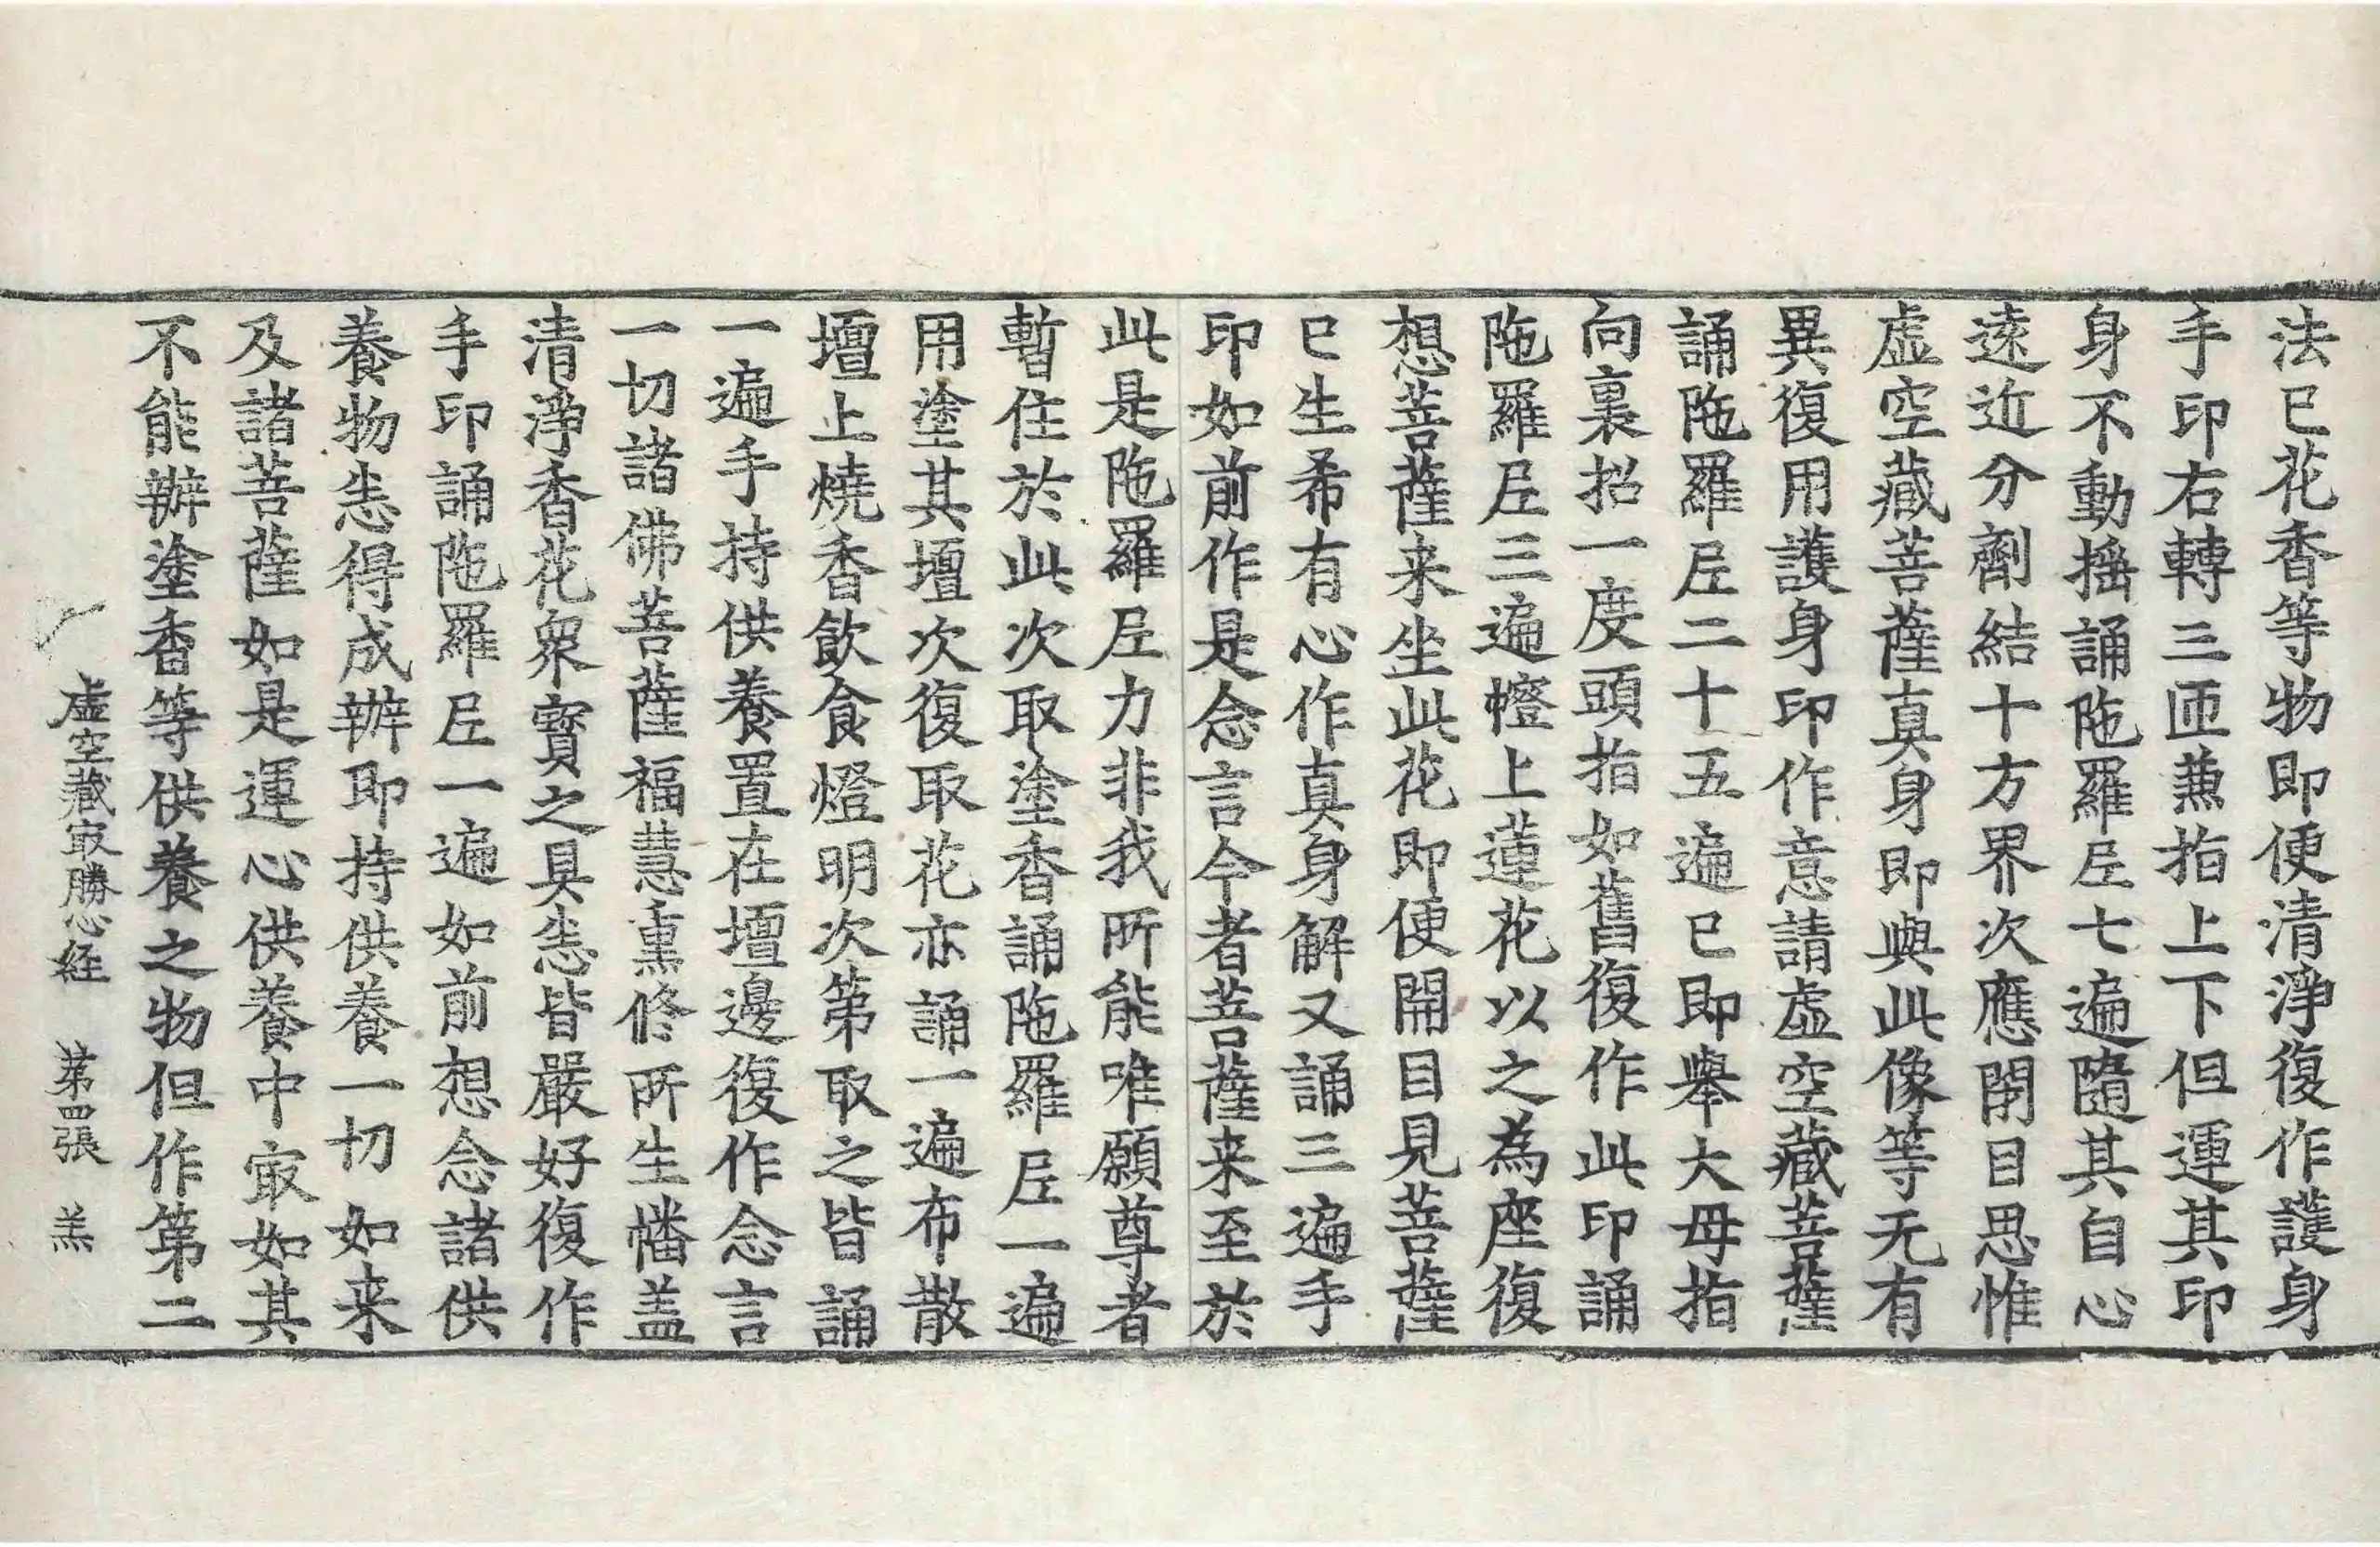 法已花香等物即便清淨復作護身
手印右轉三匝兼指上下但運其印
身不動揺誦陁羅𡰱七遍隨其自心
遠近分劑結十方界次應閇目思惟
虛空藏菩薩真身即與此像等无有
異復用護身印作意請虛空藏菩薩
誦陁羅𡰱二十五遍已即舉大母指
向裏招一度頭指如舊復作此印誦
陁羅𡰱三遍㡧上蓮花以之為座復
想菩薩来坐此花即便開目見菩薩
已生希有心作真身解又誦三遍手
印如前作是念言今者菩薩来至於
此是陁羅𡰱力非我所能唯願尊者
暫住於此次取塗香誦陁羅𡰱一遍
用塗其壇次復取花亦誦一遍布散
壇上燒香飲食燈明次第取之皆誦
一遍手持供養置在壇邊復作念言
一切諸佛菩薩福慧熏修所生幡盖
清淨香花衆寶之具悉皆嚴好復作
手印誦陁羅𡰱一遍如前想念諸供
養物悉得成辦即持供養一切如来
及諸菩薩如是運心供養中㝡如其
不能辦塗香等供養之物但作第二
虛空藏㝡勝心経　第四張　羔